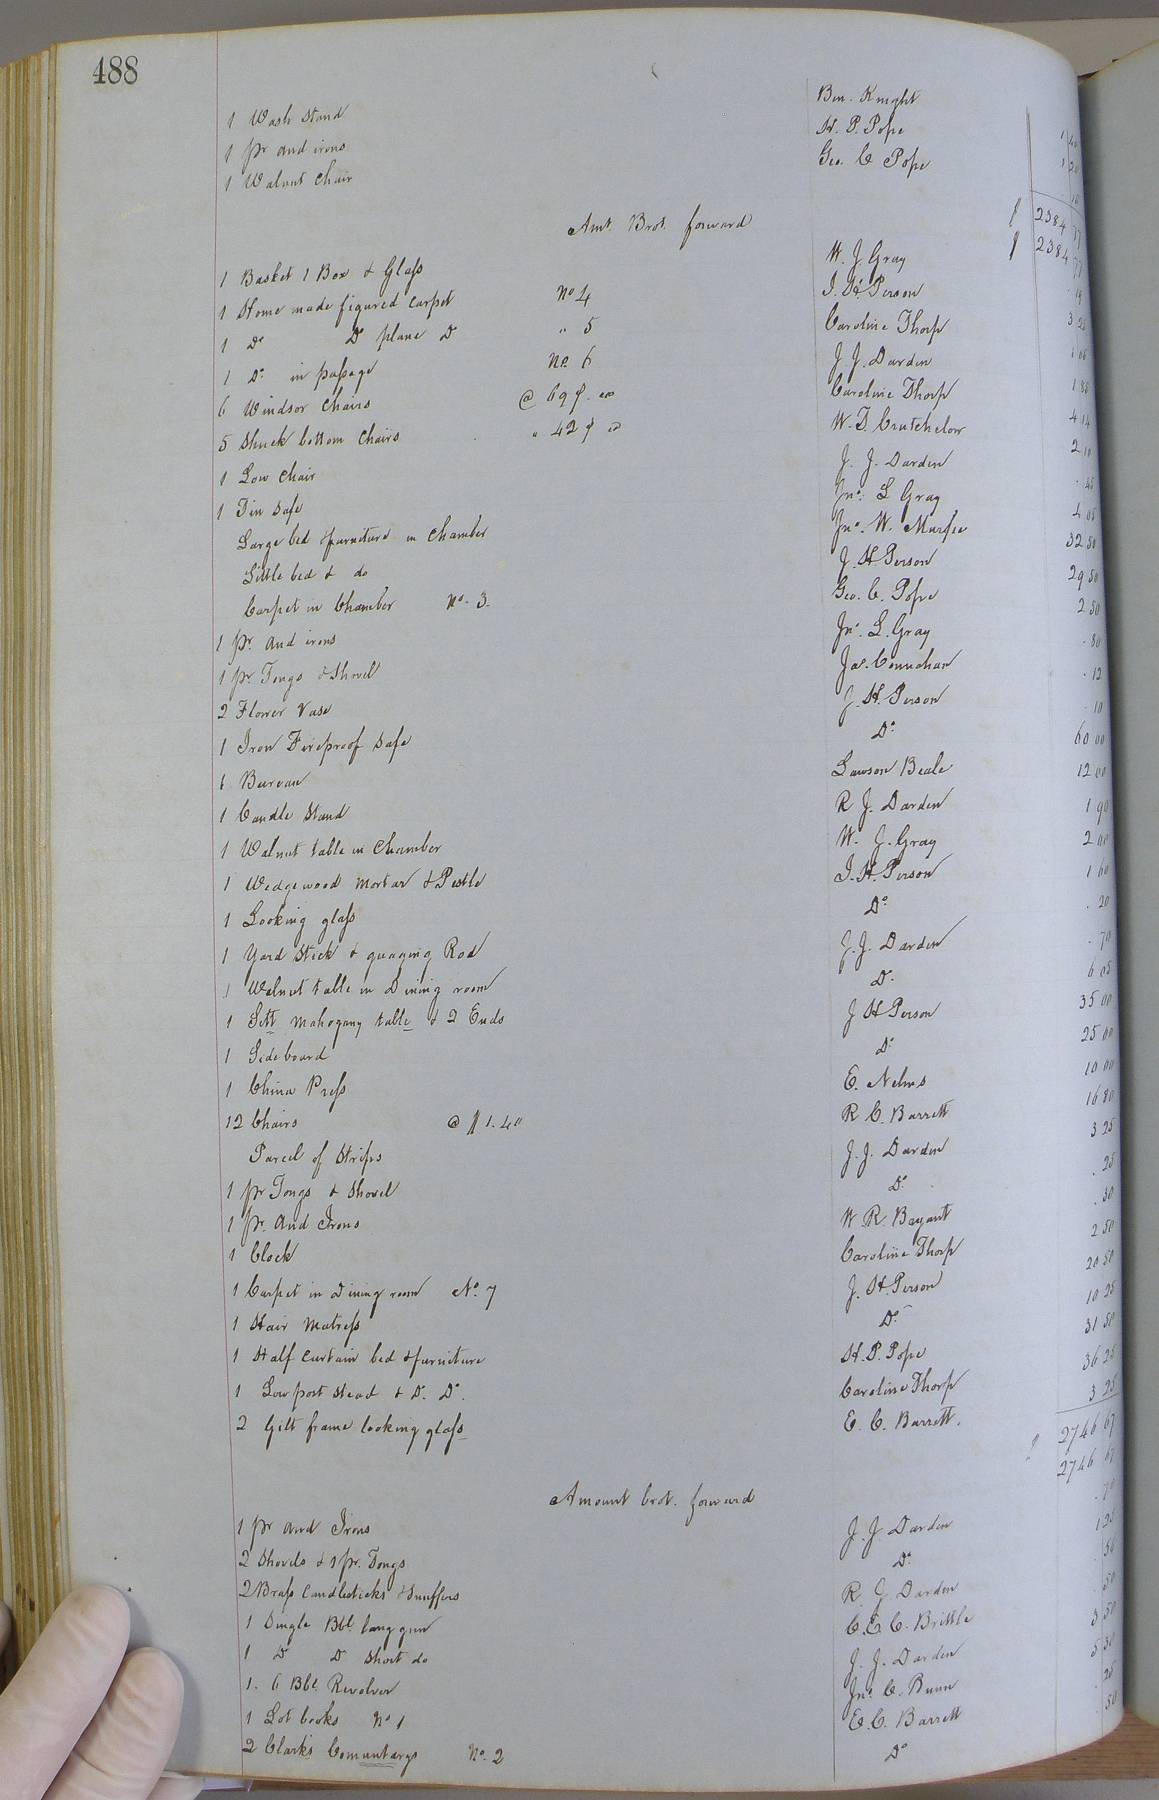 488
1 Wash Stand Ben. Knight 1 40
1 pr and irons H. P. Pope 1 20
1 Walnut Chair Geo. C Pope 10
$ 2384 77
Amt. Brot. forward $ 2384 77
1 Basket 1 Box & Glass W. J Gray
1 Home made figured carpet No 4 J. H. Person 3 25
1 Do D plane D " 5 Caroline Thorp
1 Do in passage No. 6 J. J. Darden 1 85
6 Windsor Chairs @ 69 ¢ ea Caroline Thorp 4 14
5 Shuck bottom Chairs " 42 ¢ ea W. D. Crutchelow 2 10
1 Low Chair J. J. Darden 45
1 Tin Safe Jno. L Gray 4 05
Large bed & furniture in Chamber Jno. W. Murfee 32 50
Little bed & do J. H Person 29 50
Carpet in Chamber No. 3. Geo. C. Pope 2 50
1 pr. and irons Jno. L. Gray 80
1 pr. Tongs & Shovel Jas. Counchan 12
2 Flower Vase J. H. Person 10
1 Iron Fireproof Safe Do 60 00
1 Bureau Lawson Beale 12 00
1 Candle Stand R J. Darden 1 90
1 Walnut table in Chamber W. J. Gray 2 00
1 Wedgewood Mortar & Pestle J. H. Person 1 60
1 Looking glass Do 20
1 Yard Stick & guaging Rod J. J. Darden 70
1 Walnut table in Dining room D. 6 05
1 Sett Mahogany table & 2 Ends J H Person 35 00
1 Sideboard Do 25 00
1 China Press E. Nelms 10 00
12 Chairs @ $1.40 R C. Barrett 16 80
Parcel of Strips J. J. Darden 3 25
1 pr Tongs & Shovel Do 25
1 pr. And Irons W. R. Bryant 50
1 Clock Caroline Thorp 2 50
1 Carpet in Dining room No. 7 J. H. Person 20 50
1 Hair Matress Do 10 25
1 Half Curtain bed & furniture H. P. Pope 31 50
1 Low post Stead & D. Do. Caroline Thorp 36 25
2 Gilt frame looking glass E. C. Barrett. 3 25
$ 2746 67
Amount brot. forward 2746 67
1 pr and Irons J. J. Darden 70
2 Shovels & 1 pr. Tongs Do 1 25
2 Brass Candlesticks & Snuffers R. J Darden 50
1 Single Bbl. long gun C. E. C. Brittle 50
1 D D Short do J. J. Darden 3 50
1. 6 Bbl. Revolver Jno. C. Bunn 5 50
1 Lot books No 1 E. C. Barrett 25
2 Clarks Comuntarys No. 2 Do 50